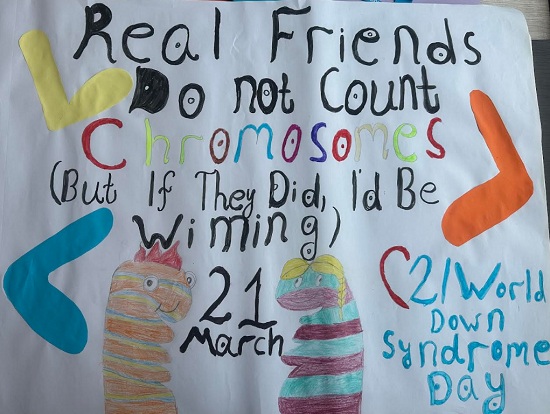 Real Friends
Do not Count
Chromosomes
(But If They Did, I'd Be
Wiming)
21
March
21 World
Down
Syndrome
Day